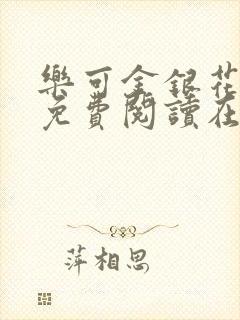 樂可金銀花
免費閱讀在
萍相思